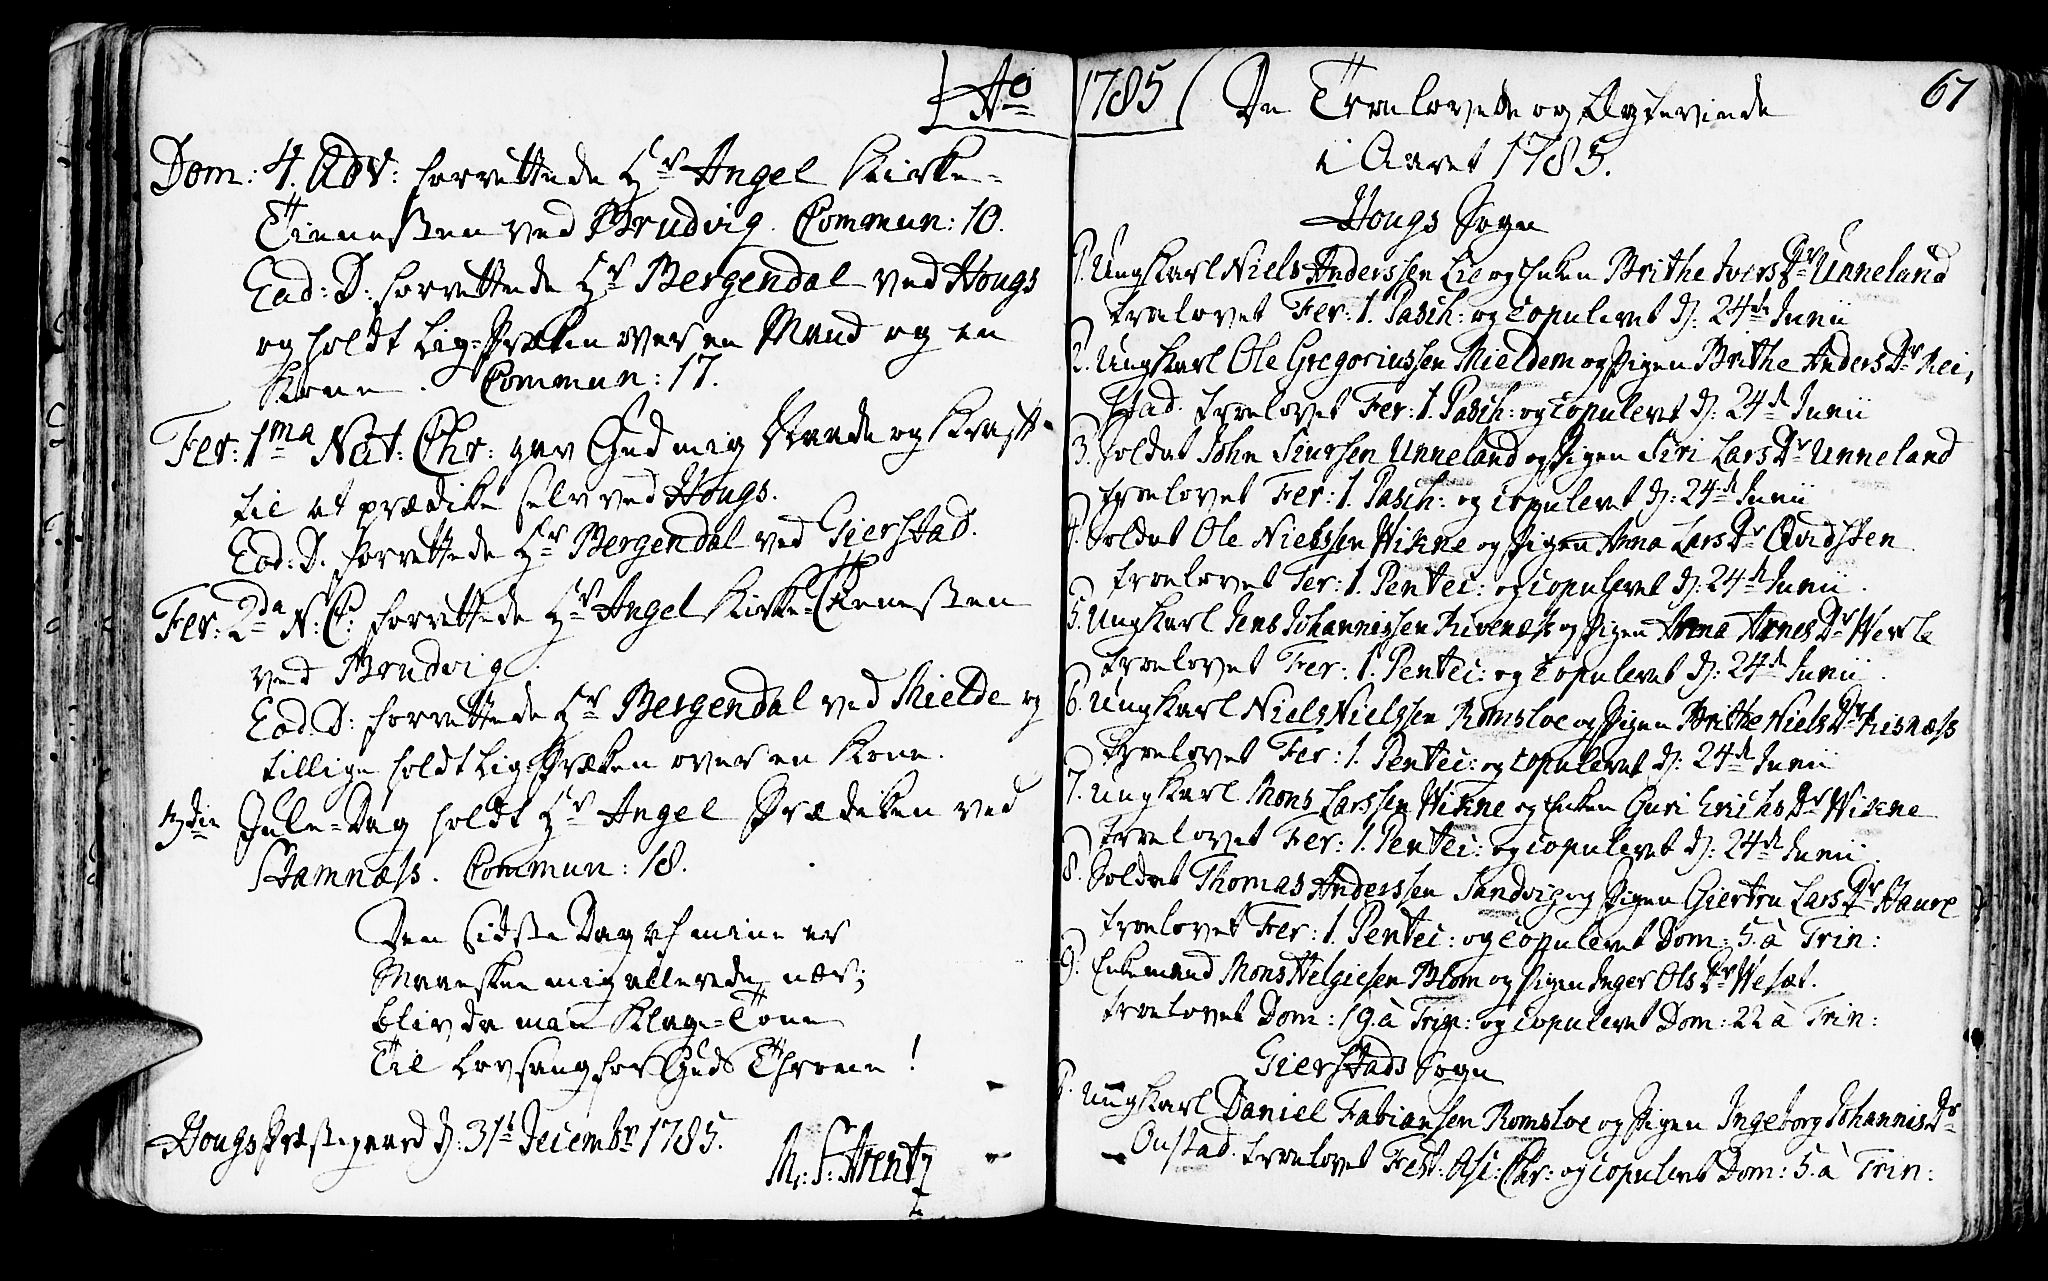 Ao
Dom: 4. Adv: forrettede Hr Angel Kirke-
Tienesten ved Brudvig. Commun: 10.
Ead: D: forrettede Hr Bergendal ved Hougs
og holdt Lig-Præken over en Mand og en
Kone. Commun: 17.
Fer: 1ma Nat: Chr: gav Gud mig Naade og Kraft
til at prædike selv ved Hougs.
Ead: D. forrettede Hr Bergendal ved Gierstad.
Fer: 2da N: C: forrettede Hr Angel Kirke-Tienesten
ved Brudvig.
Ead: D: forrettede Hr Bergendal ved Mielde og
tillige holdt Lig-Præken over en Kone.
3die Jule-Dag holdt Hr Angel Prædiken ved
Stamnæss. Commun: 18.
Den sidste Dag af mine er
Maaskee mig allerede nær;
bliv da man Klage-Tone
Til Lovsang for Guds Throne!
Hougs Præstegaard d: 31t Decembr 1785.
M: F: Arentz
1785 De Troelovede og Ægtevinde 67
i Aaret 1785.
Hougs Sogn
1. Ungkarl Niels Anderssen Lie og Enken Brithe Ivers Dr Unneland
troelovet Fer: 1. Pasch: og copuleret d: 24de Junii
2. Ungkarl Ole Gregoriussen Mieldem og Pigen Brithe Anders Dr Rei,
stad. troelovet Fer: 1. Pasch: og copuleret d: 24de Junii
3. Soldat John Siursen Unneland og Pigen Siri Lars Dr Unneland
troelovet Fer: 1. Pasch: og copuleret d: 24de Junii
4. Soldat Ole Nielssen Wikne og Pigen Anna Lars Dr Qvidsten
troelovet Fer: 1. Pentec: og copuleret d: 24de Junii.
5. Ungkarl Jens Johannissen Rivenæss og Pigen Anna Arnes Dr Wevle
troelovet Fer: 1. Pentec: og copuleret d: 24de Junii.
6. Ungkarl Niels Nielssen Romsloe og Pigen Brithe Niels Dr Risnæss
troelovet Fer: 1. Pentec: og copuleret d: 24de Junii
7. Ungkarl Mons Larssen Wikne og Enken Guri Erichs Dr Wikne
troelovet Fer: 1. Pentec: og copuleret d: 24de Junii.
8. Soldat Thomas Anderssen Sandvig og Pigen Giertru Lars Dr Hauge
troelovet Fer: 1. Pentec: og copuleret Dom: 5. à Trin:
9. Enkemand Mons Helgiesen Blom og Pigen Inger Ols Dr Wesæt.
troelovet Dom: 19. à Trin: og copuleret Dom: 22 à Trin:
Gierstads Sogn
1. Ungkarl Daniel Fabiansen Romsloe og Pigen Ingeborg Johannis Dr
Onstad. troelovet Fest: Asc: Chr: og copuleret Dom: 5. à Trin: